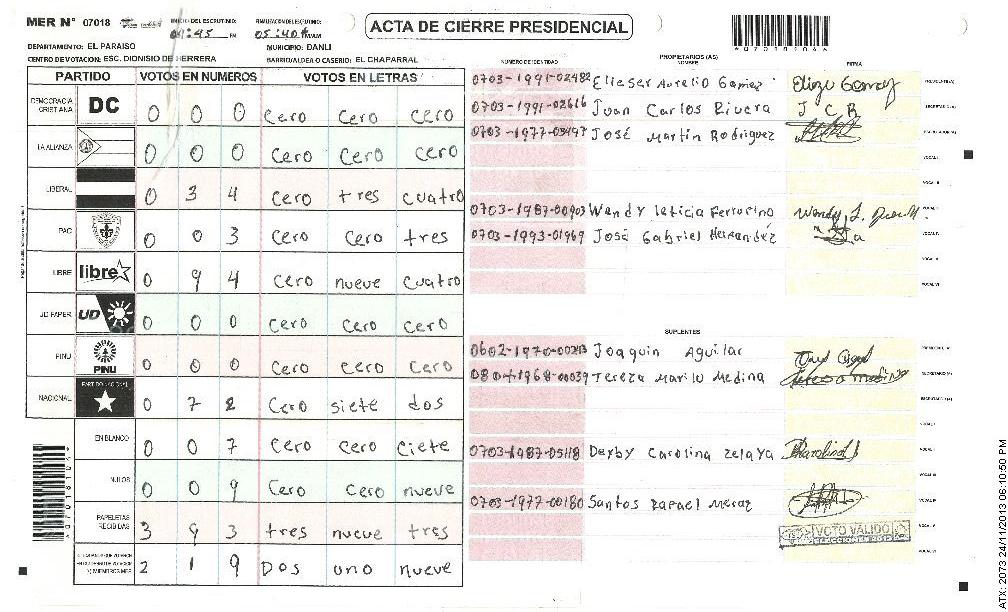 MER N° 07018
INICIO DEL ESCRUTINIO:
04:45 PM
FINALIZACION DEL ESCRUTINIO:
05:40
ACTA DE CIERRE PRESIDENCIAL
DEPARTAMENTO: EL PARAISO
MUNICIPIO: DANLI
CENTRO DE VOTACION: ESC. DIONISIO DE HERRERA
BARRIO/ALDEA O CASERIO: EL CHAPARRAL
PARTIDO VOTOS EN NUMEROS VOTOS EN LETRAS
DEMOCRACIA CRISTIANA DC 0 0 0 Cero Cero cero
LA ALIANZA 0 0 0 Cero Cero Cero
LIBERAL 0 3 4 Cero tres cuatro
PAC 0 0 3 Cero Cero tres
LIBRE libre 0 9 4 Cero nueve Cuatro
UD FAPER UD 0 0 0 Cero Cero Cero
PINU PINU 0 0 0 Cero Cero Cero
NACIONAL PARTIDO NACIONAL 0 7 2 Cero siete dos
EN BLANCO 0 0 7 Cero Cero Ciete
NULOS 0 0 9 Cero Cero nueve
PAPELETAS RECIBIDAS 3 9 3 tres nueve tres
2 1 9 Dos uno nueve
PROPIETARIOS (AS)
NUMERO DE IDENTIDAD NOMBRE FIRMA
0703-1991-02482 Elieser Aurelio Gomez
0703-1991-02616 Juan Carlos Rivera J C R
0703-1977-03497 José Martin Rodriguez
0703-1987-00903 Wendy leticia Ferrufino
0703-1993-01969 José Gabriel Hernandéz
SUPLENTES
0602-1970-00213 Joaquin Aguilar
1968-00039 Tereza Marilu Medina
0703-1987-05118 Derby Carolina Zelaya
0703-1977-00180 Santos Rafael Meraz
VOTO VALIDO
ELECCIONES 2013
0701810 6
ATX: 2073 24/11/2013 06:10:50 PM